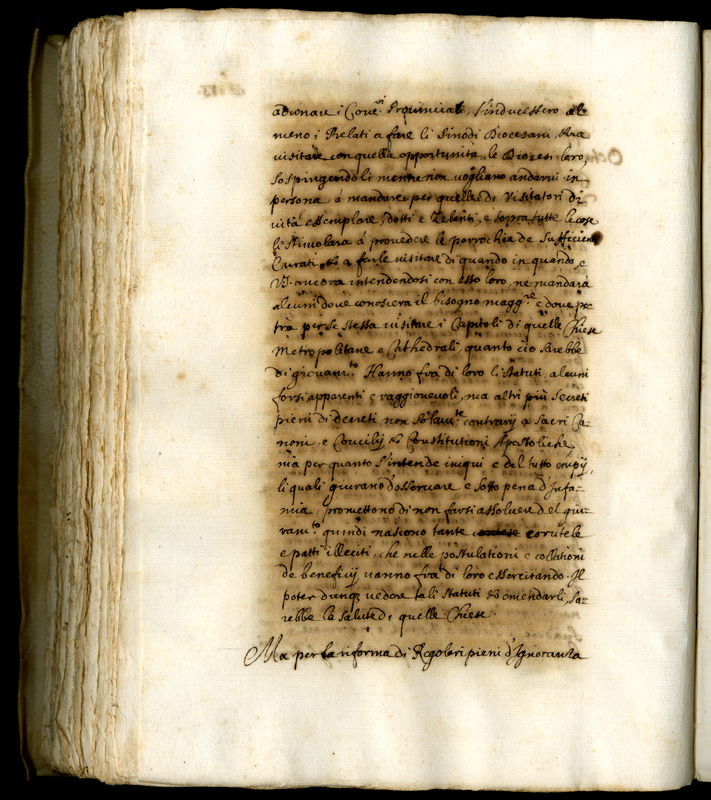 adunare i Conc.ri Provinciali, s'inducessero al-
meno i Prelati a fare li Sinodi Diocesani, et a
visitare con quella opportunità le Diocesi loro,
sospingendoli mentre non vogliano andarui in
persona, à mandare per quelle de Visitatori di
vita essemplare, dotti e Zelanti, e sopra tutte le cose
li stimolarà à provedere le parrochie de sufficienti
Curati, et a farle visitare di quando in quando, e
V.S. ancora intendendosi con esso loro, ne mandarà
alcuni dove conoscerà il bisogno magg.re e dove po-
trà per se stessa visitare i Capitoli di quelle Chiese
Metropolitane e Cathedrali, quanto ciò sarebbe
di giovam.to Hanno fra di loro li statuti, alcuni
forsi apparenti e raggionevoli, ma altri più secreti
pieni di decreti non solam.te contrarij a Sacri Ca-
noni, e Concilij et Constitutioni Apostoliche,
mà per quanto s'intende iniqui e del tutto empij,
li quali giurano d'osservare e sotto pena d'Infa-
mia, promettono di non farsi assolvere del giu-
ram.to quindi nascono tante corutele
e patti illeciti, che nelle postulationi e collationi
de beneficij vanno fra di loro essercitando. Il
poter dunq; vedere tali statuti et emendarli, sa-
rebbe la salute di quelle Chiese.
Ma per la riforma di Regolari pieni d'Ignoranza